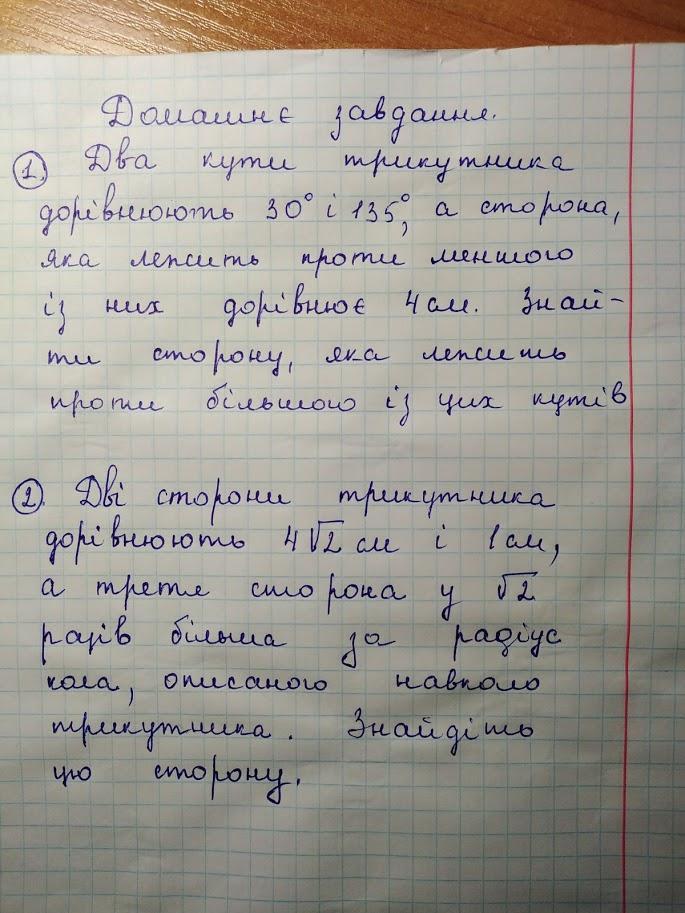 Домашнє завдання.
1. Два кути трикутника
дорівнюють 30° і 135°, а сторона,
яка лежить проти меншого
із них дорівнює 4 см. Знай-
ти сторону, яка лежить
проти більшого із цих кутів
2. Дві сторони трикутника
дорівнюють 4√2 см і 1 см,
а третя сторона у √2
разів більша за радіус
кола, описаного навколо
трикутника. Знайдіть
цю сторону.